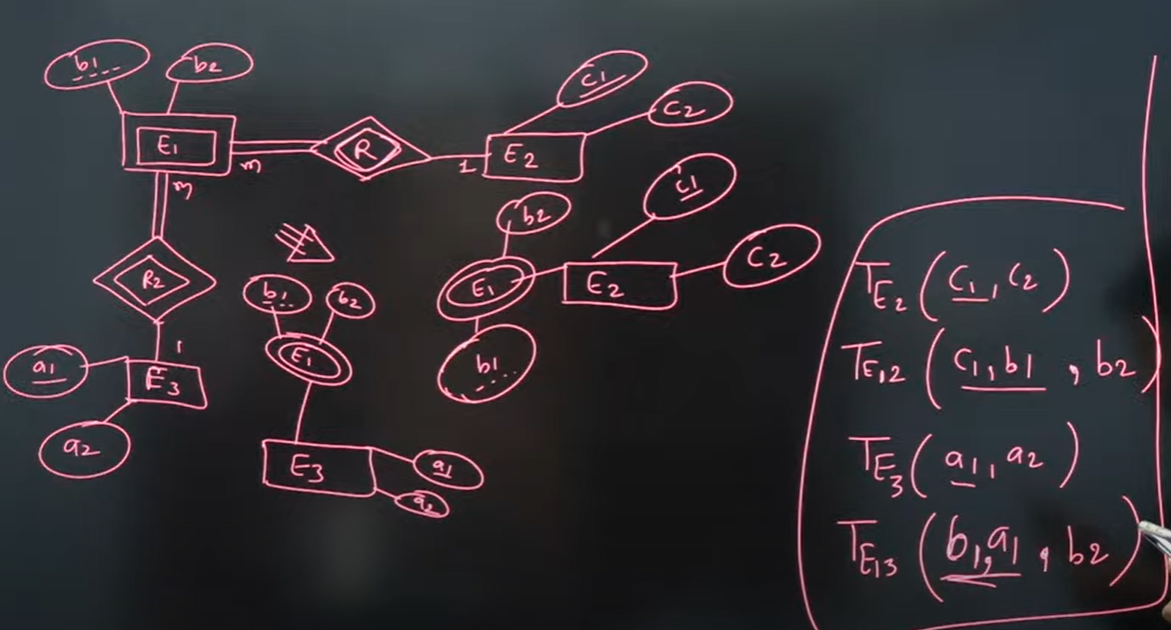 b1 b2
E1
m
R
1
E2
c1
c2
m
R2
1
E3
a1
a2
b1 b2
E1
E3
a1
a2
b2
E1
b1
E2
c1
c2
TE2 (c1, c2)
TE12 (c1, b1, b2)
TE3 (a1, a2)
TE13 (b1, a1, b2)